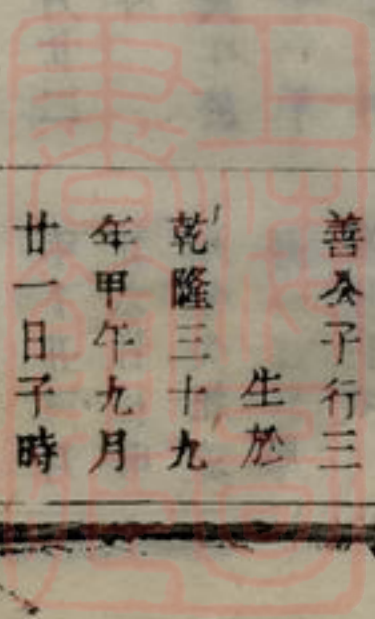 善公子行三
生於
乾隆三十九
年甲午九月
廿一日子時